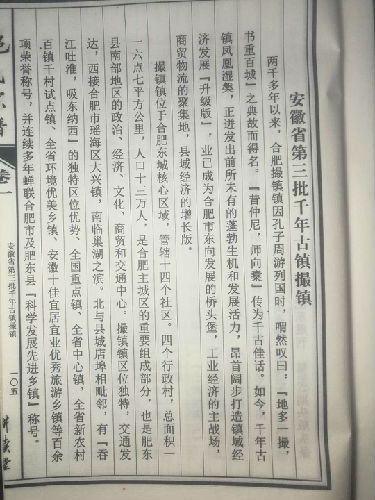 安徽省第三批千年古镇撮镇
两千多年以来，合肥撮镇镇因孔子周游列国时，喟然叹曰：『地多一撮，
书重百城』之典故而得名。『昔仲尼，师向橐』传为千古佳话。如今，千年古
镇凤凰涅槃，正迸发出前所未有的蓬勃生机和发展活力，昂首阔步打造镇域经
济发展『升级版』，业已成为合肥市东向发展的桥头堡，工业经济的主战场，
商贸物流的聚集地，县域经济的增长版。
撮镇镇位于合肥东城核心区域，管辖十四个社区。四个行政村，总面积一
一六点七平方公里，人口十三万人，是合肥主城区的重要组成部分，也是肥东
县南部地区的政治、经济、文化、商贸和交通中心。撮镇镇区位独特，交通发
达，西接合肥市瑶海区大兴镇，南临巢湖之滨。北与县城店埠相毗邻，有『吞
江吐淮，吸东纳西』的独特区位优势、全国重点镇、全省中心镇，全省新农村
百镇千村试点镇、全省环境优美乡镇、安徽十佳宜居宜业优秀旅游乡镇等百余
项荣誉称号，并连续多年蝉联合肥市及肥东县『科学发展先进乡镇』称号。
卷一
安徽省第三批千年古镇撮镇
一〇五